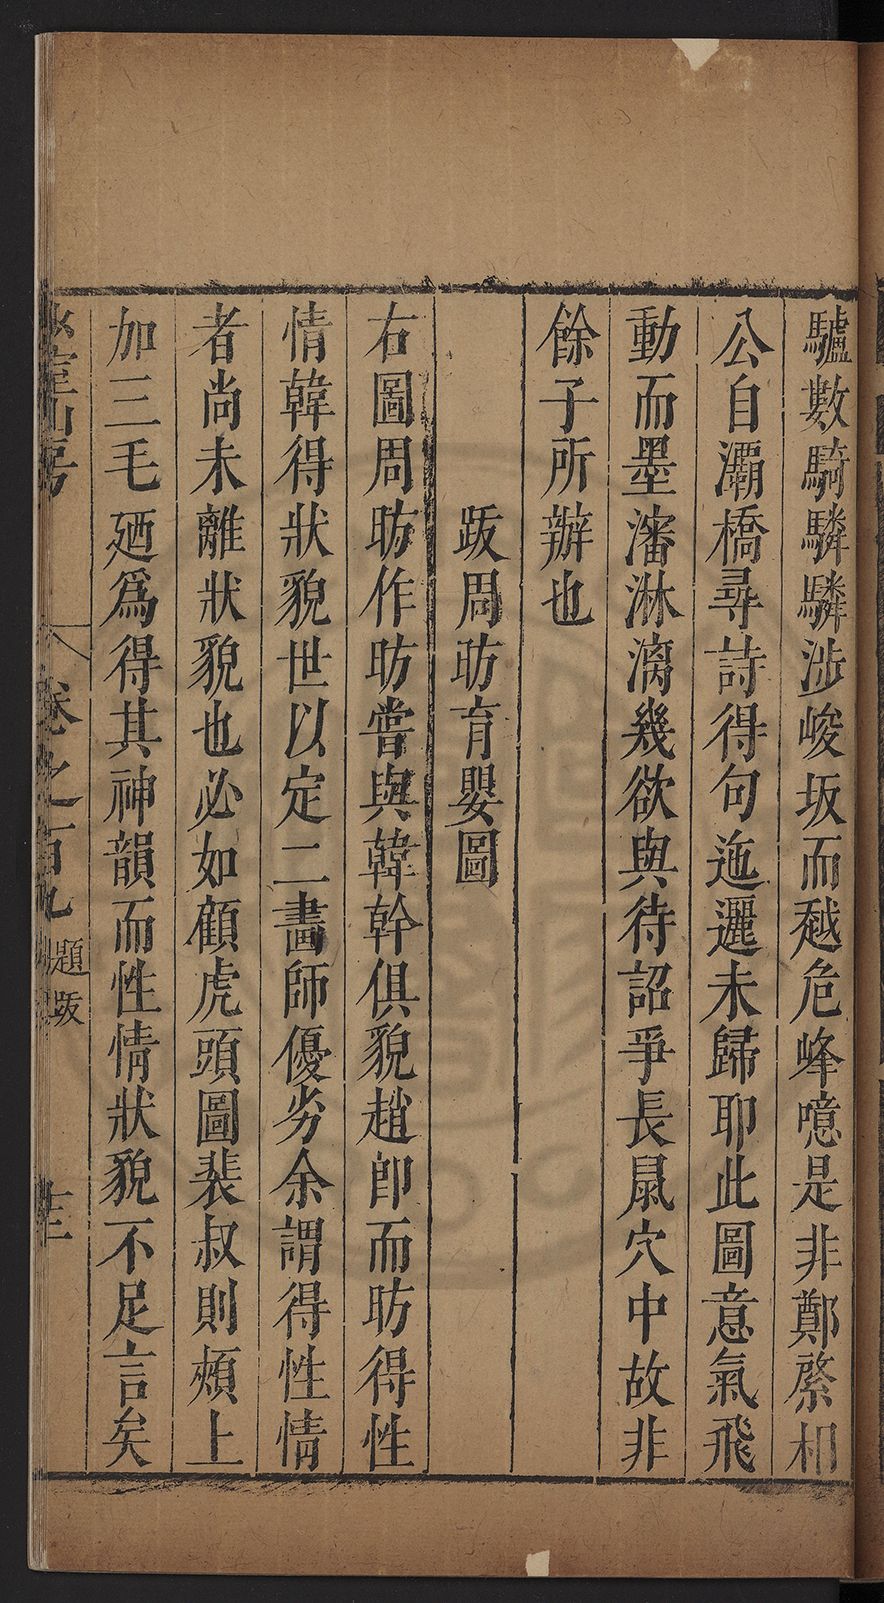 驢數騎驎驎涉峻坂而越危峰噫是非鄭綮相
公自灞橋尋詩得句迤邐未歸耶此圖意氣飛
動而墨瀋淋漓幾欲與待詔爭長鼠穴中故非
餘子所辦也
跋周昉育嬰圖
右圖周昉作昉嘗與韓幹俱貌趙郎而昉得性
情韓得狀貌世以定二畵師優劣余謂得性情
者尚未離狀貌也必如顧虎頭圖裴叔則頰上
加三毛廼爲得其神韻而性情狀貌不足言矣
山房
卷之百九
題跋